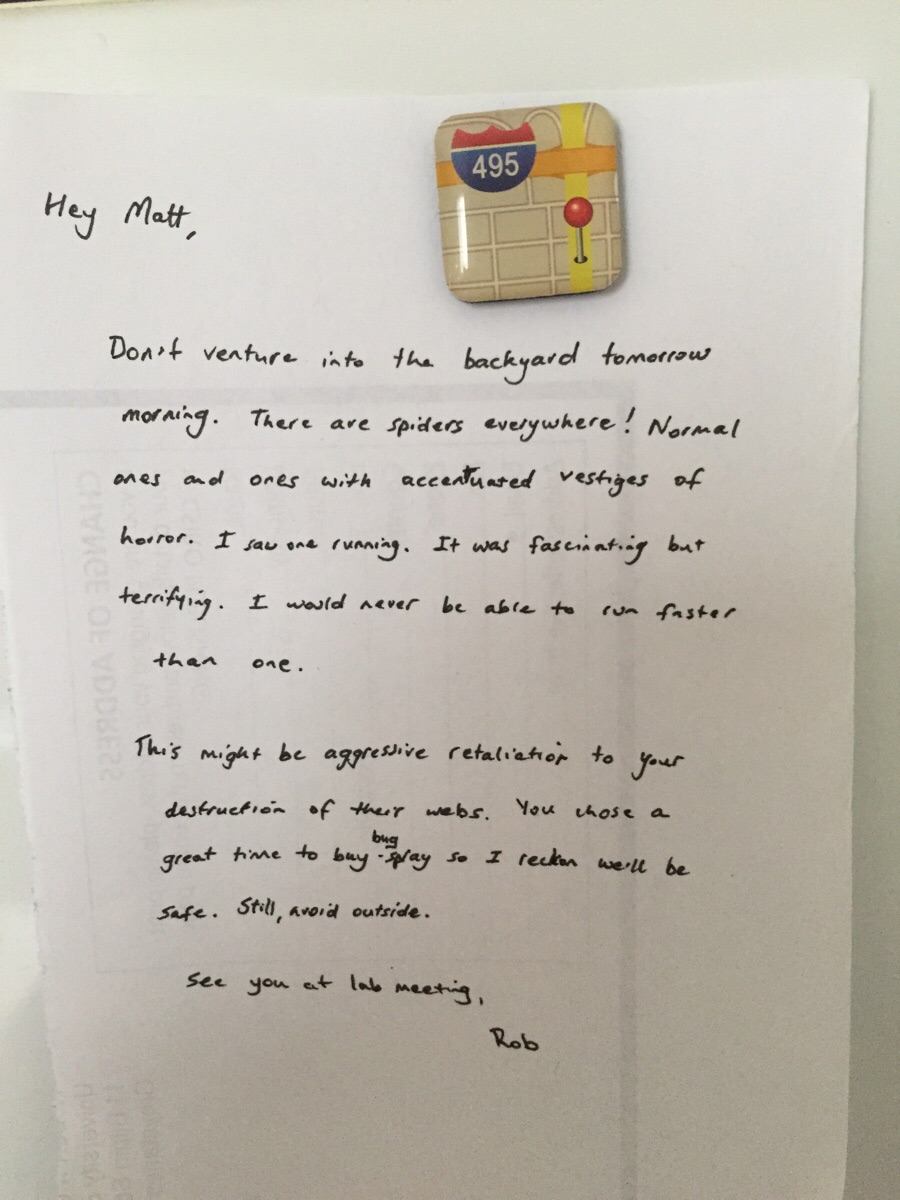 495
Hey Matt,
Don't venture into the backyard tomorrow
morning. There are spiders everywhere! Normal
ones and ones with accentuated vestiges of
horror. I saw one running. It was fascinating but
terrifying. I would never be able to run faster
than one.
This might be aggressive retaliation to your
destruction of their webs. You chose a
great time to buy bug spray so I reckon we'll be
safe. Still, avoid outside.
See you at lab meeting,
Rob
CHANGE OF ADDRESS